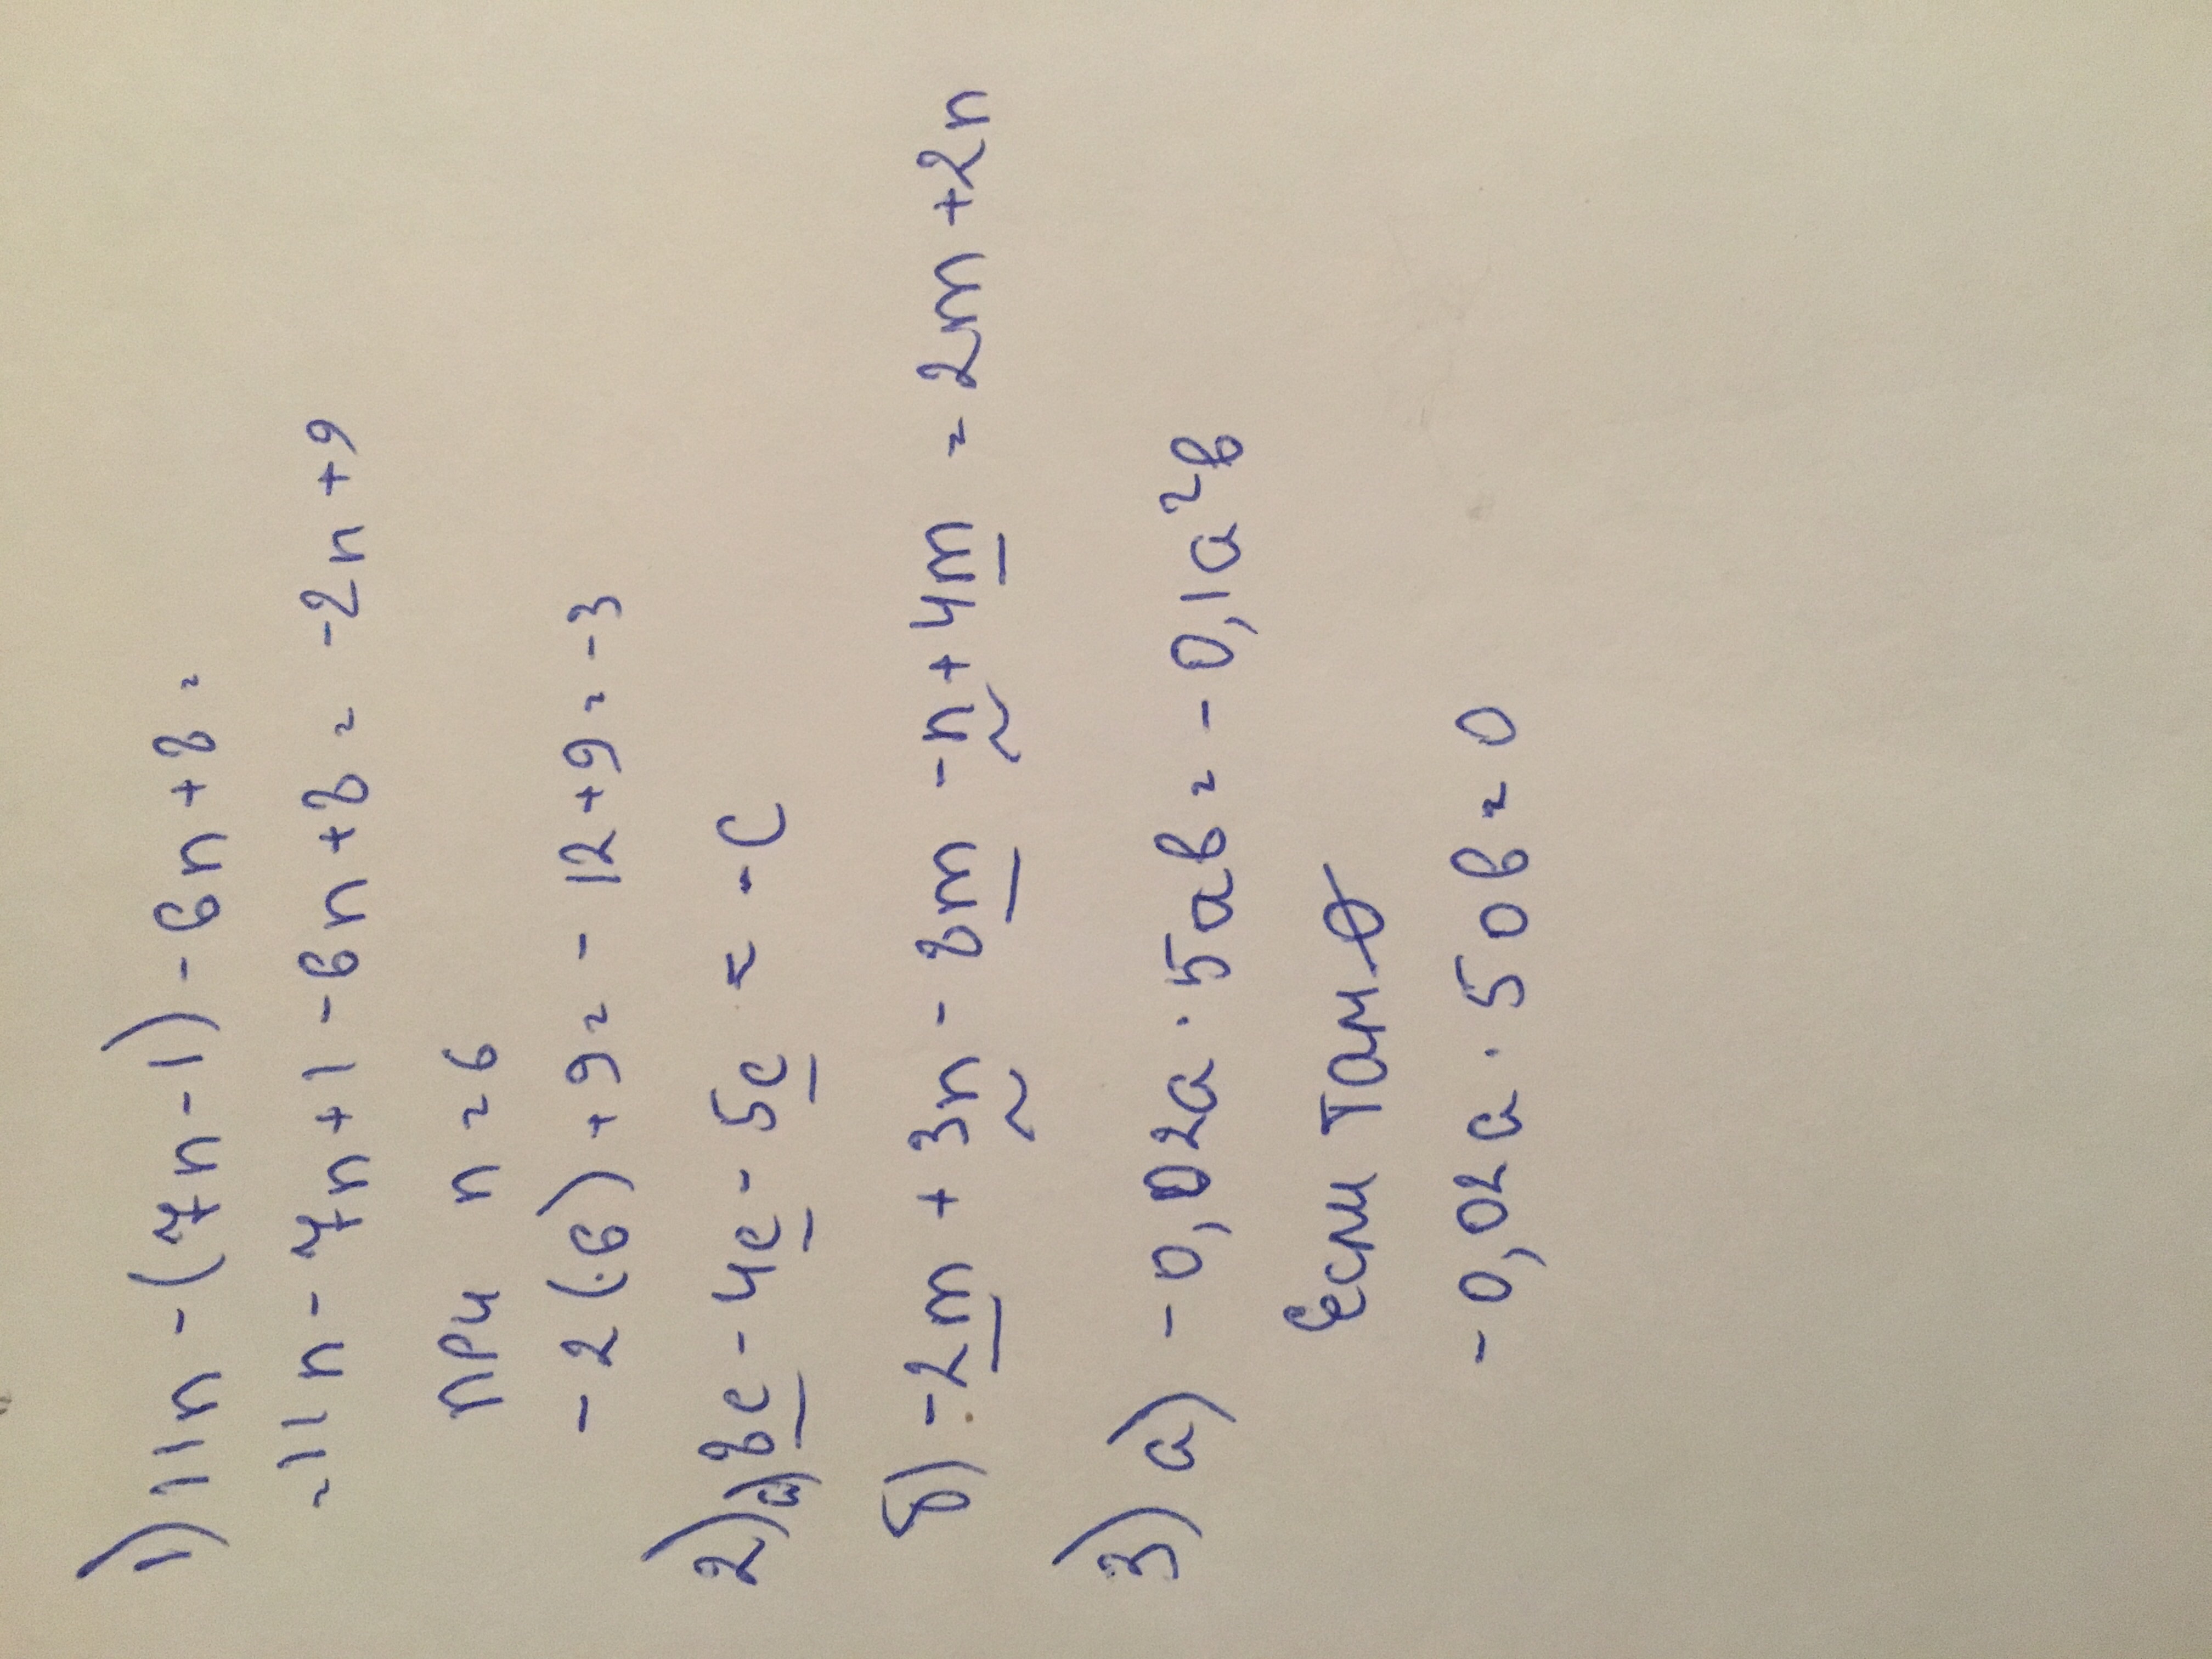 1) 11n - (7n - 1) - 6n + 8 =
= 11n - 7n + 1 - 6n + 8 = -2n + 9
при n = 6
- 2(·6) + 9 = - 12 + 9 = - 3
2) а) 8c - 4c - 5c = - c
б) -2m + 3n - 8m - n + 4m = 2m + 2n
3) а) - 0,02а · 5ав = - 0,1а²в
Если там 0
- 0,02а · 50в = 0